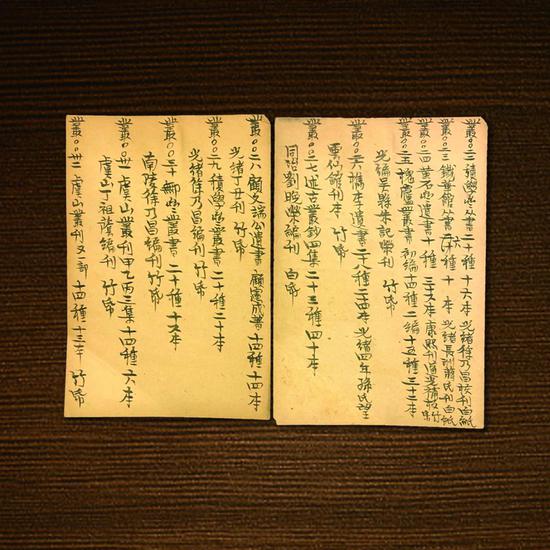 叢〇〇二二 積學齋叢書二十種 十六本 光緒徐乃昌校刊 白紙
叢〇〇二三 鐵華館叢書六種 十本 光緒長洲蔣氏刊白紙
叢〇〇二四 石 遺書十種 本 康熙刊
叢〇〇二五 槐廬叢書 初編十四種 二編十五種 三十二本
光緒吳縣朱記榮刊 竹帋
叢〇〇二六 檇李遺書二十八種二十四本 光緒四年孫氏望
雲仙館刊 竹帋
叢〇〇二七 述古叢鈔四集 二十三種 四十本
同治劉晚榮編刊 白帋
叢〇〇二八 顧文端公遺書 顧憲成著 十四種十四本
光緒丁丑刊 竹帋
叢〇〇二九 積學齋叢書 二十種二十本
光緒徐乃昌編刊 竹帋
叢〇〇三十 鄦齋叢書 二十種 十六本
南陵徐乃昌編刊 竹帋
叢〇〇卅一 虞山叢刊甲乙丙三集十四種 六本
虞山丁祖蔭編刊 竹帋
叢〇〇卅二 虞山叢刊又一部 十四種十三本 竹帋